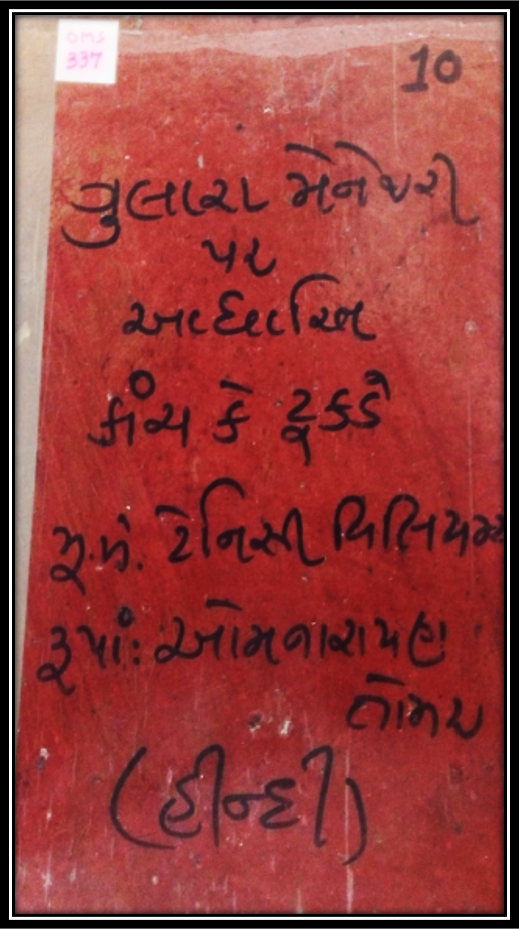 OMS
337
10
ગ્લાસ મેનેજરી
પર
આધારિત
કાંચ કે ટૂકડે
મૂ.લે. ટેનિસી વિલિયમ્સ
રૂપાં: ઓમનારાયણ
તોમર
(હીન્દી)